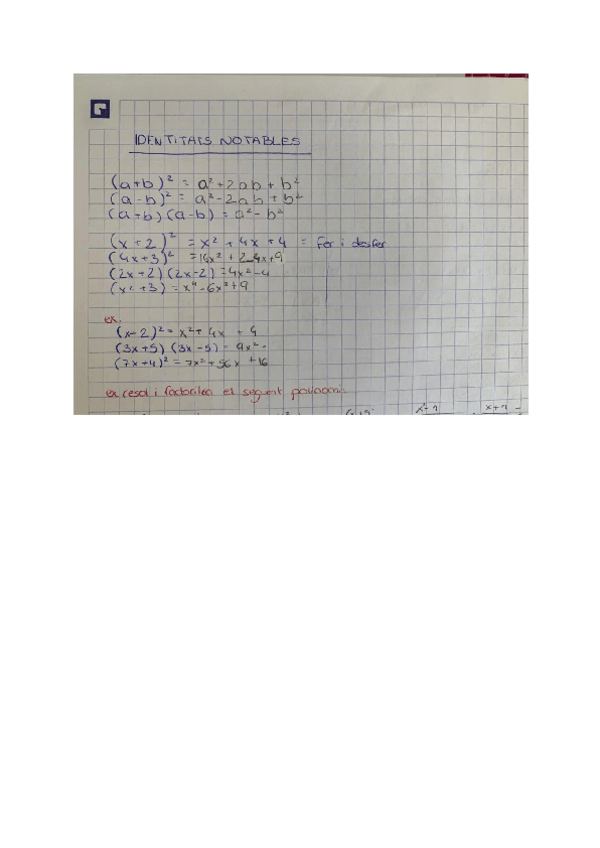 IDENTITATS NOTABLES
(a+b)² = a²+2ab+b²
(a-b)² = a²-2ab+b²
(a+b)(a-b) = a²-b²
(x+2)² = x²+4x+4 = Fer i desfer
(4x+3)² = 16x²+2·4x+9
(2x+2)(2x-2) = 4x²-4
+3) = x⁴-6x²+9
ex.
(x-2)² = x²+4x+4
(3x+5)(3x-5) = 9x²-
(7x+4)² = 7x²+56x+16
ex resol i factoritza el seguent polinomi.
x+7